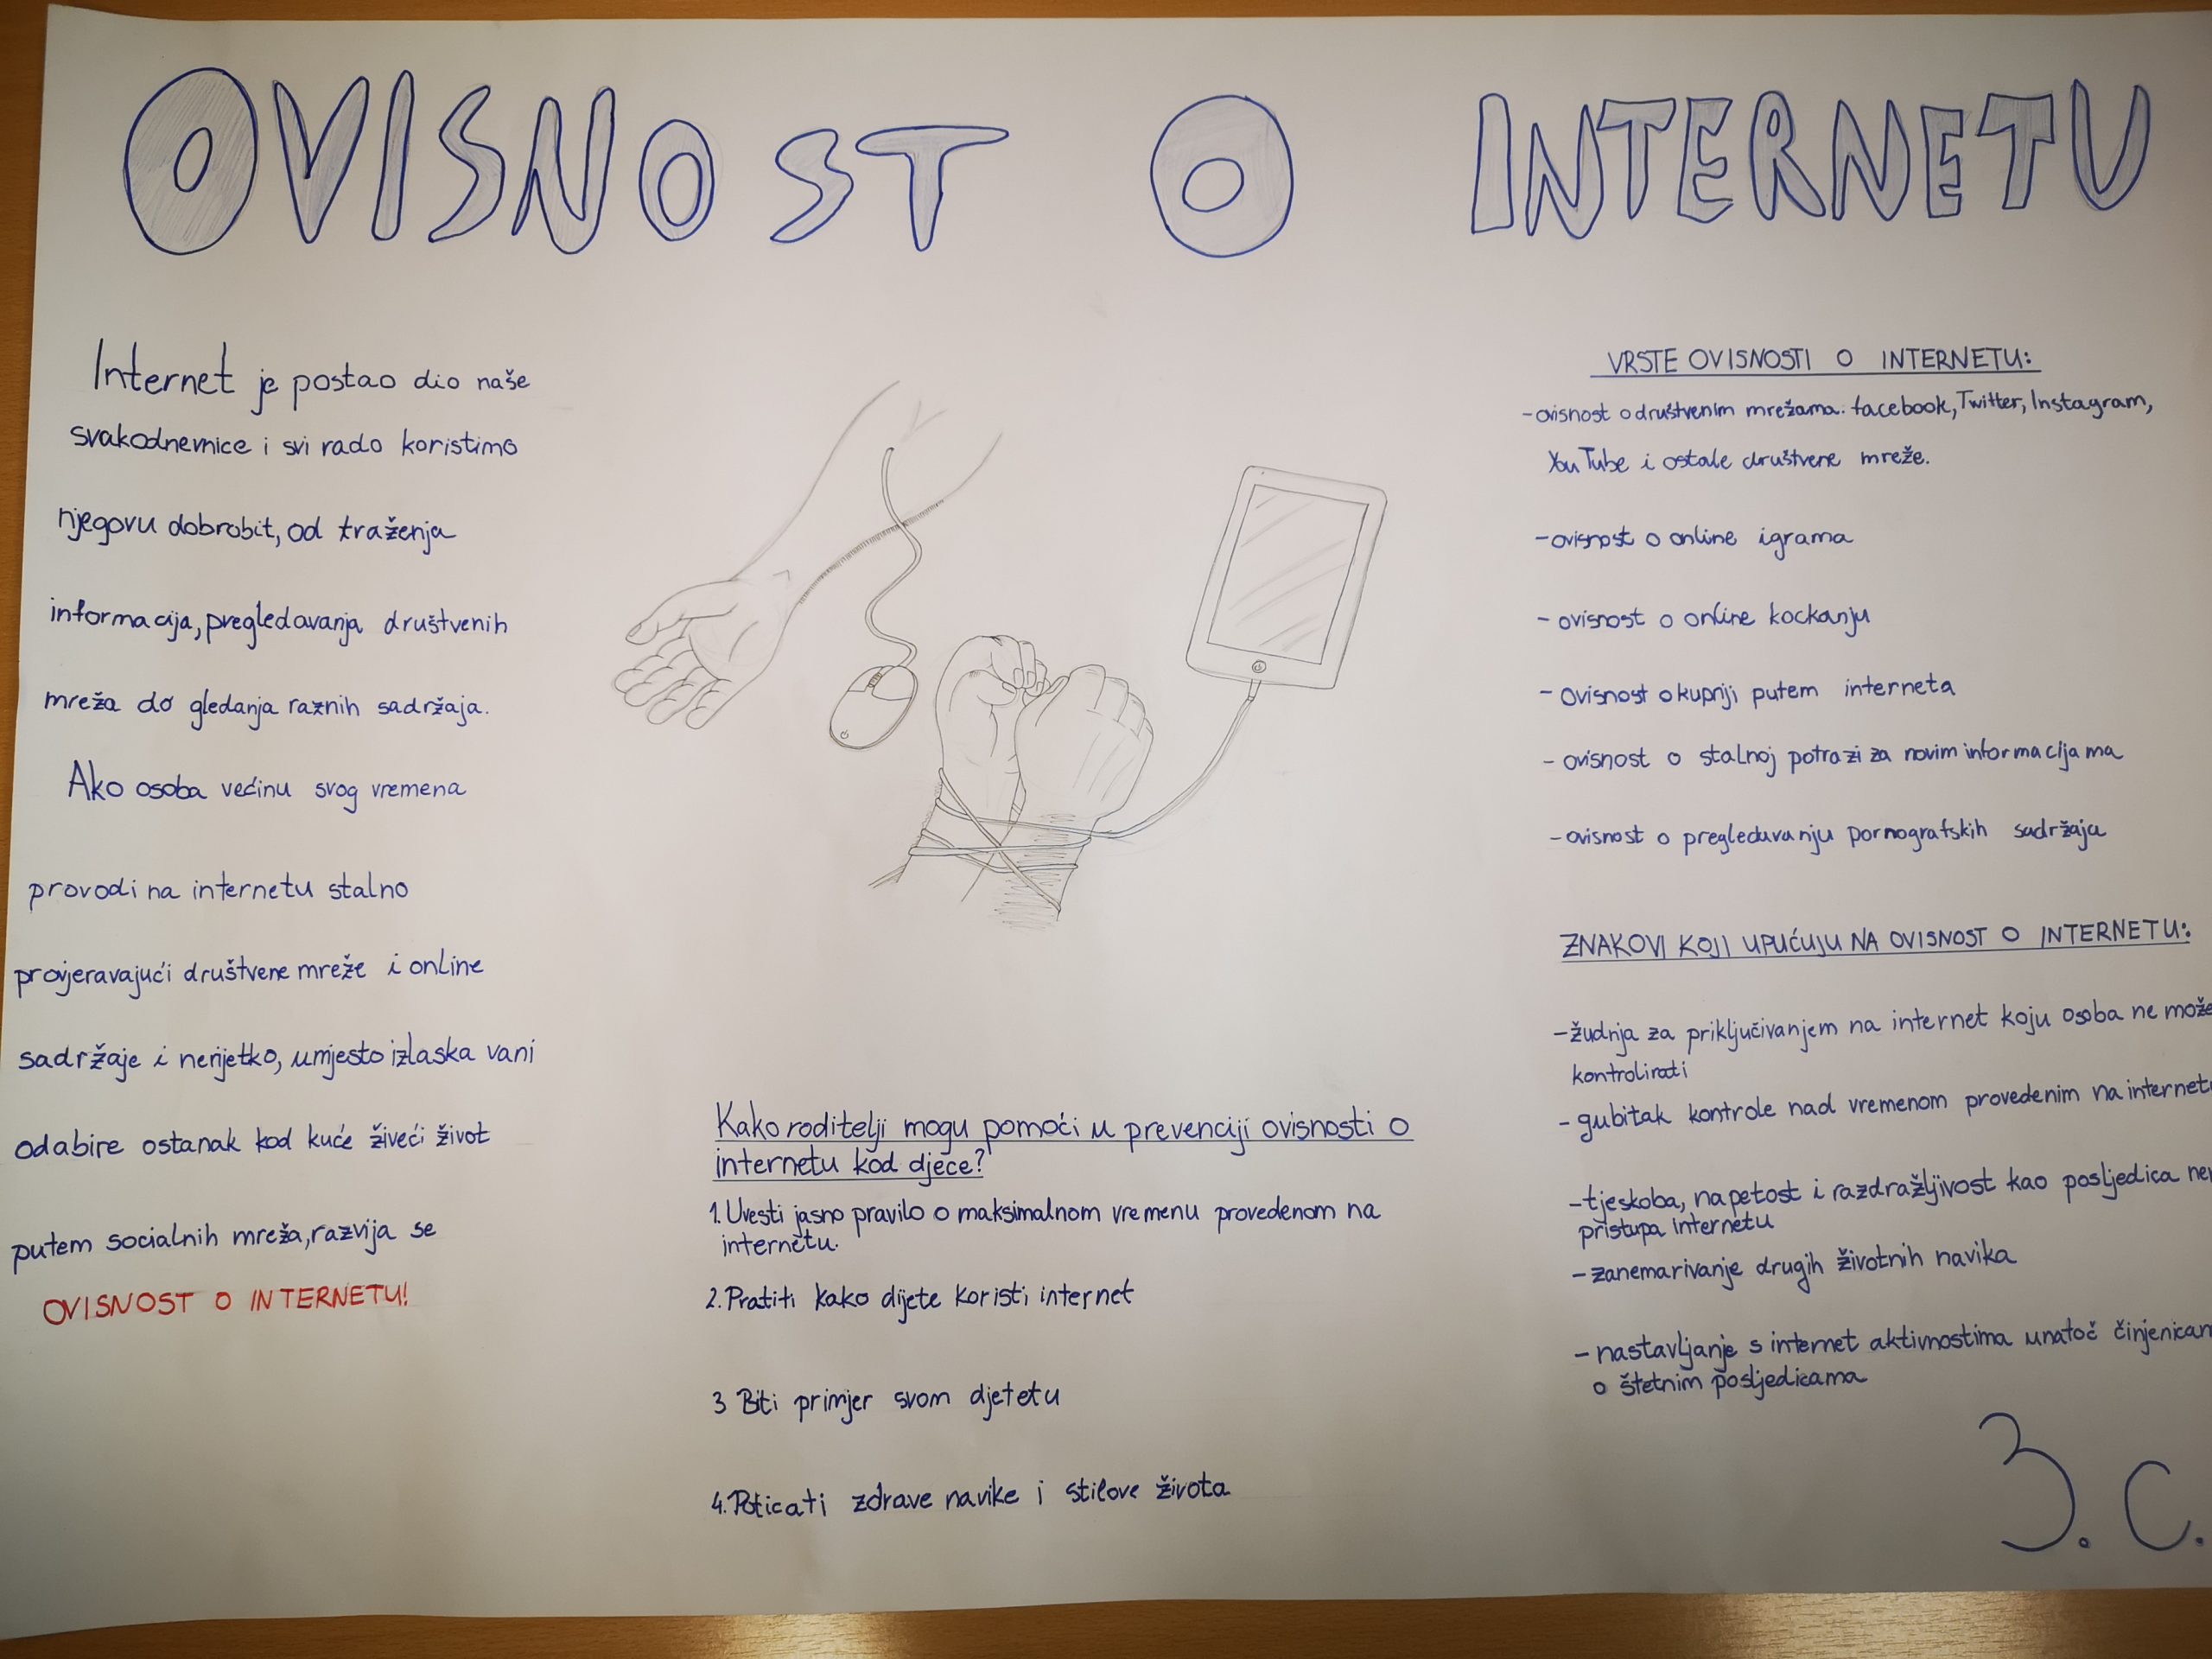 OVISNOST O INTERNETU
Internet je postao dio naše
svakodnevnice i svi rado koristimo
njegovu dobrobit, od traženja
informacija, pregledavanja društvenih
mreža do gledanja raznih sadržaja.
Ako osoba većinu svog vremena
provodi na internetu stalno
provjeravajući društvene mreže i online
sadržaje i nerijetko, umjesto izlaska vani
odabire ostanak kod kuće živeći život
putem socialnih mreža, razvija se
OVISNOST O INTERNETU!
Kako roditelji mogu pomoći u prevenciji ovisnosti o
internetu kod djece?
1. Uvesti jasno pravilo o maksimalnom vremenu provedenom na
internetu.
2. Pratiti kako dijete koristi internet
3 Biti primjer svom djetetu
4. Poticati zdrave navike i stilove života
VRSTE OVISNOSTI O INTERNETU:
- ovisnost o društvenim mrežama. facebook, Twitter, Instagram,
YouTube i ostale društvene mreže.
- ovisnost o online igrama
- ovisnost o online kockanju
- ovisnost o kupnji putem interneta
- ovisnost o stalnoj potrazi za novim informacijama
- ovisnost o pregledavanju pornografskih sadržaja
ZNAKOVI KOJI UPUĆUJU NA OVISNOST O INTERNETU:
- žudnja za priključivanjem na internet koju osoba ne može
kontrolirati
- gubitak kontrole nad vremenom provedenim na internetu
- tjeskoba, napetost i razdražljivost kao posljedica
pristupa internetu
- zanemarivanje drugih životnih navika
- nastavljanje s internet aktivnostima unatoč
o štetnim posljedicama
3. C.